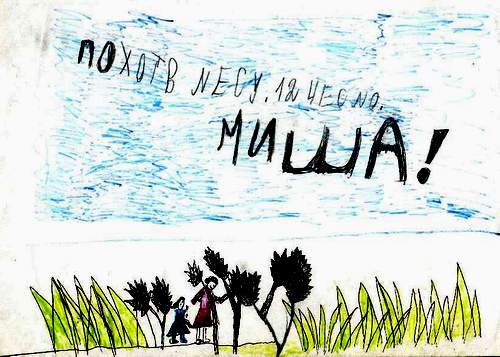 ПОХОТВ ЛЕСУ. 12 ЧЕСЛО.
МИША!